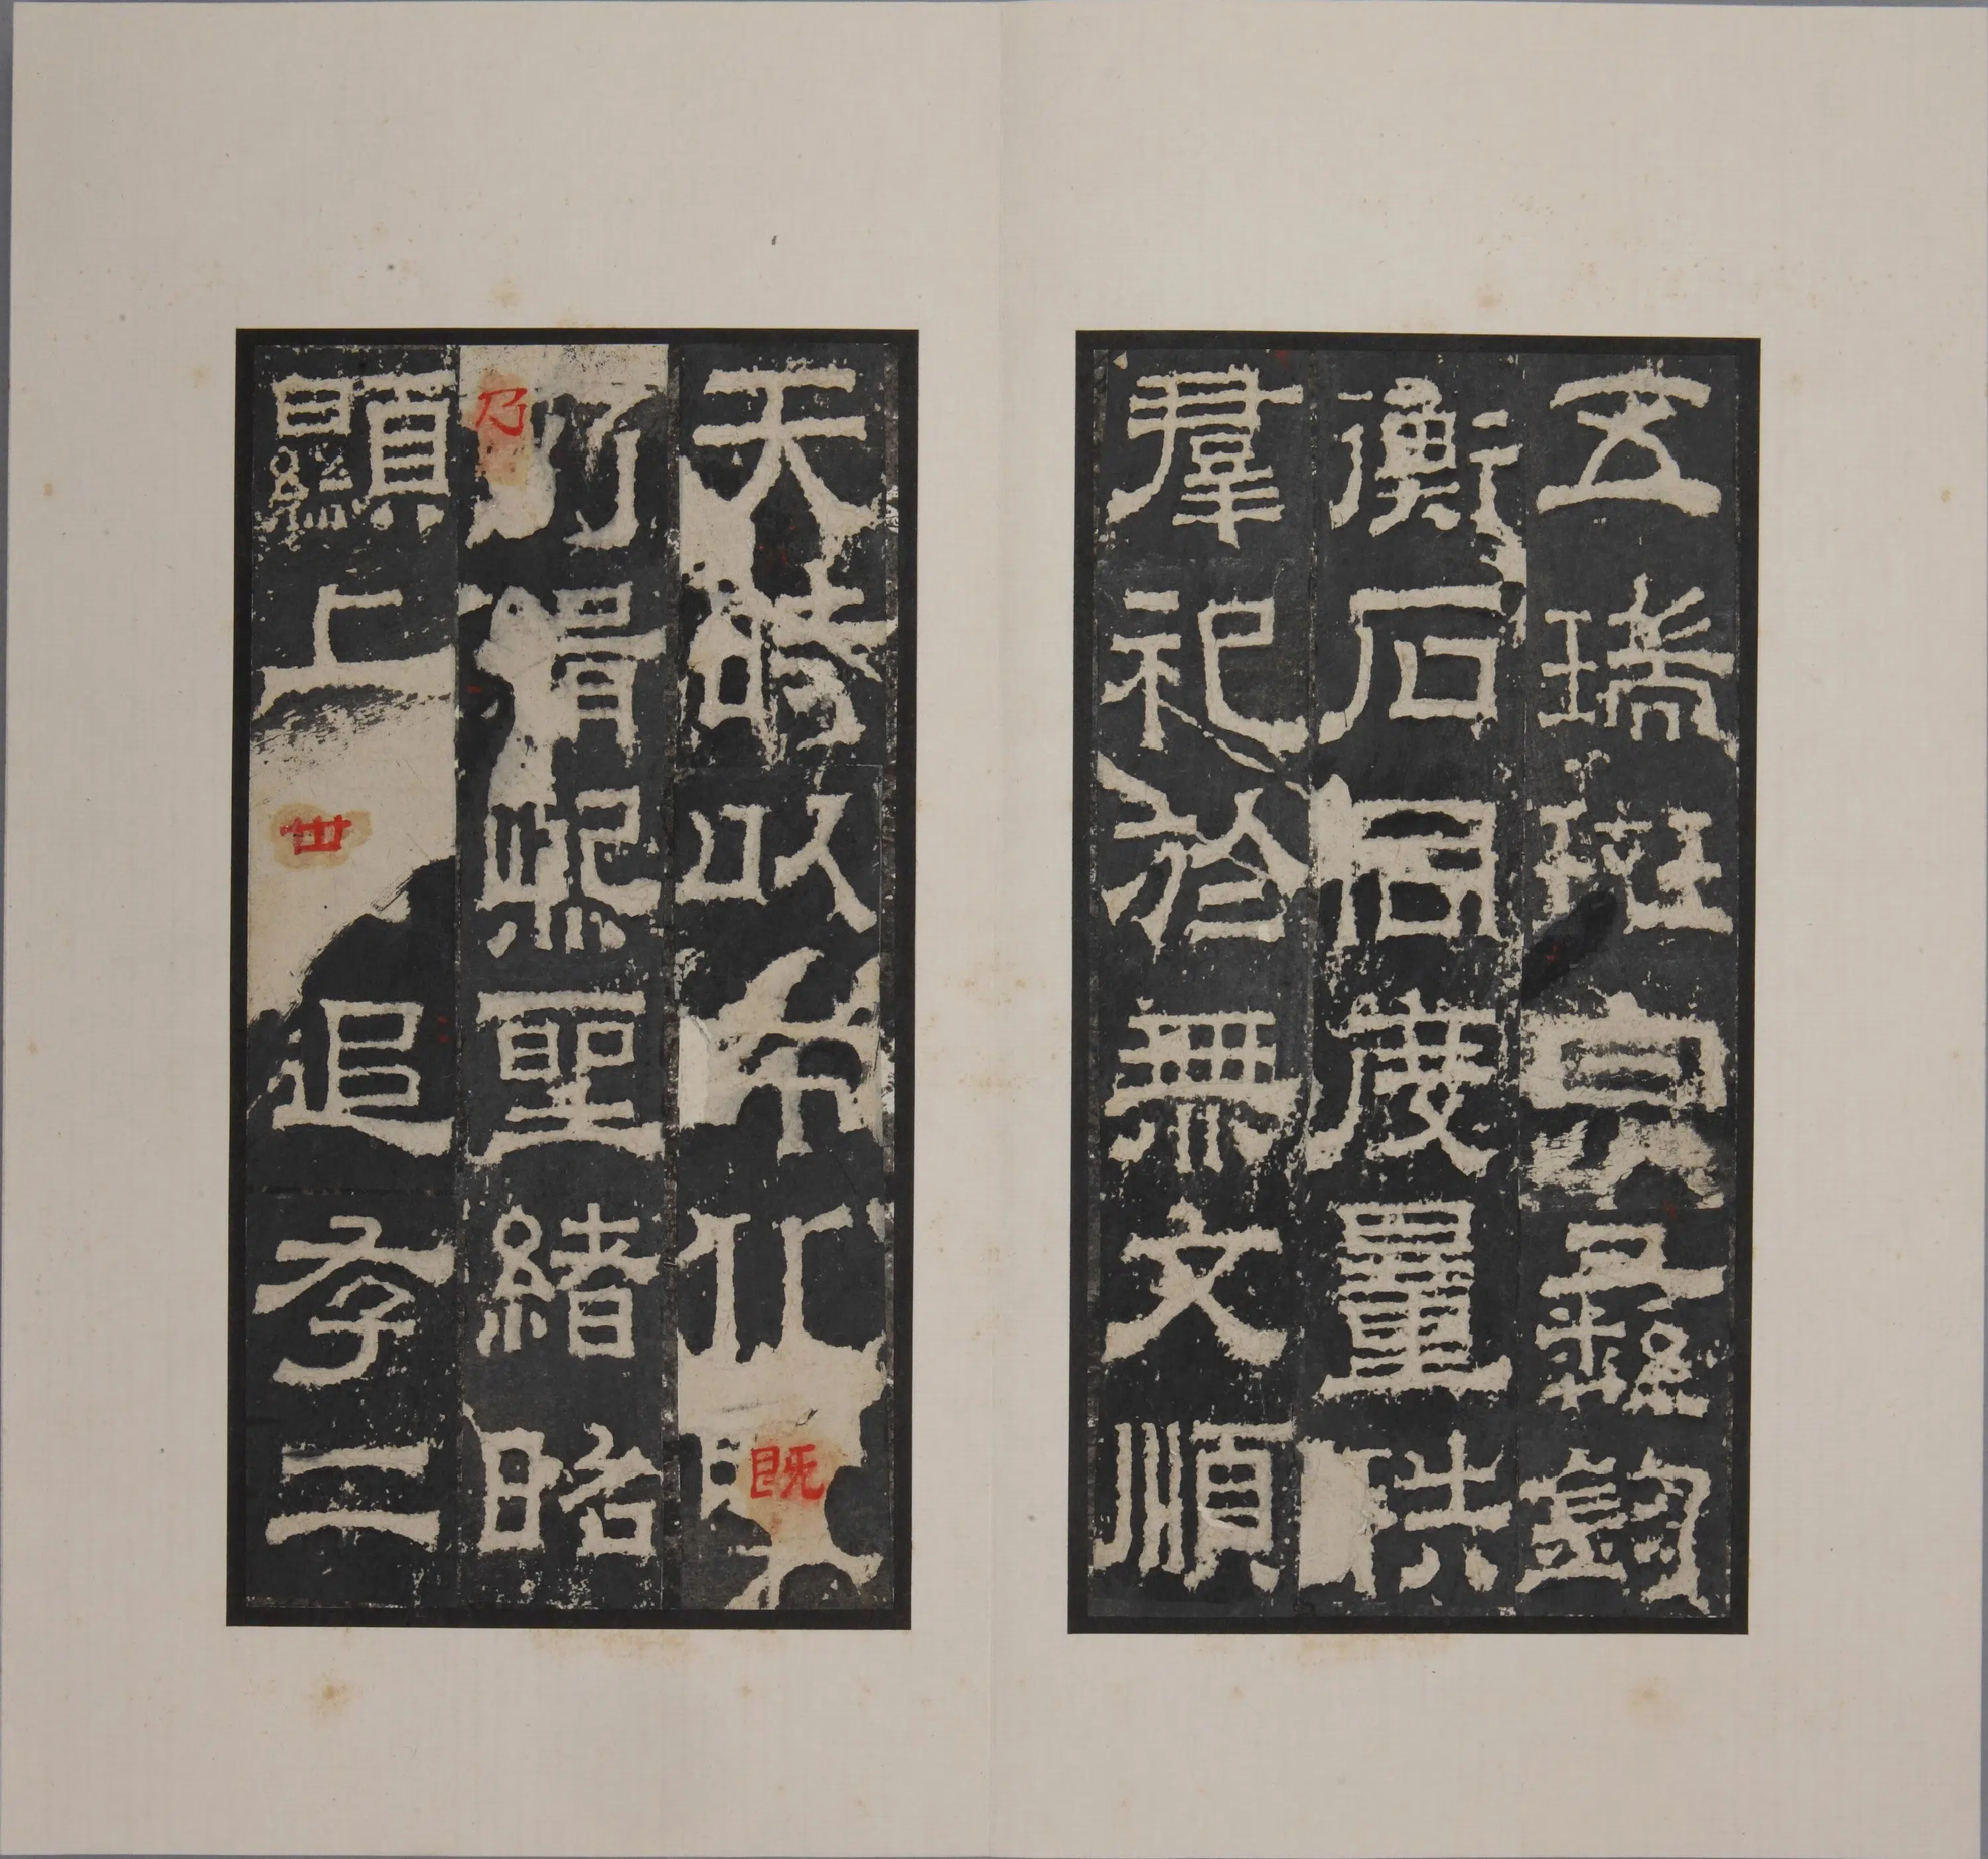 五瑞班宗彝鈞
衡石同度量秩
羣祀於無文順
天時以布化既
乃緝熙聖緒昭
顯上世追存二